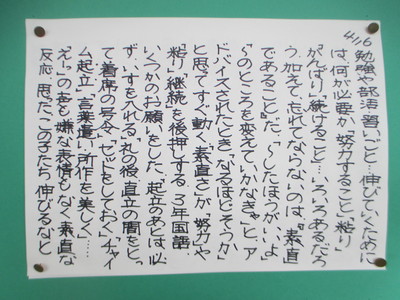 4/16
勉強や部活、習いごと…伸びていくために
は、何が必要か。「努力すること」、「粘り
がんばり続けること…、いろいろあるだろ
う。加えて、忘れてならないのは、『素直
であること』だ。「〜したほうがいいよ」
「〜のところを変えていかなきゃ」と、ア
ドバイスされたとき、「なるほど、そうか」
と思ってすぐ動く『素直さ』が、「努力」や
「粘り」「継続」を後押しする。3年国語、
いくつかのお願いをした。起立のあとは必
ず、いすを入れる。礼の後直立の間をとっ
て着席の号令。「セットをしておく」「チャイ
ム起立」「言葉遣い、所作を美しく」……
「え〜」の声も嫌な表情もなく素直な
反応。思った。この子たち、伸びるな、と